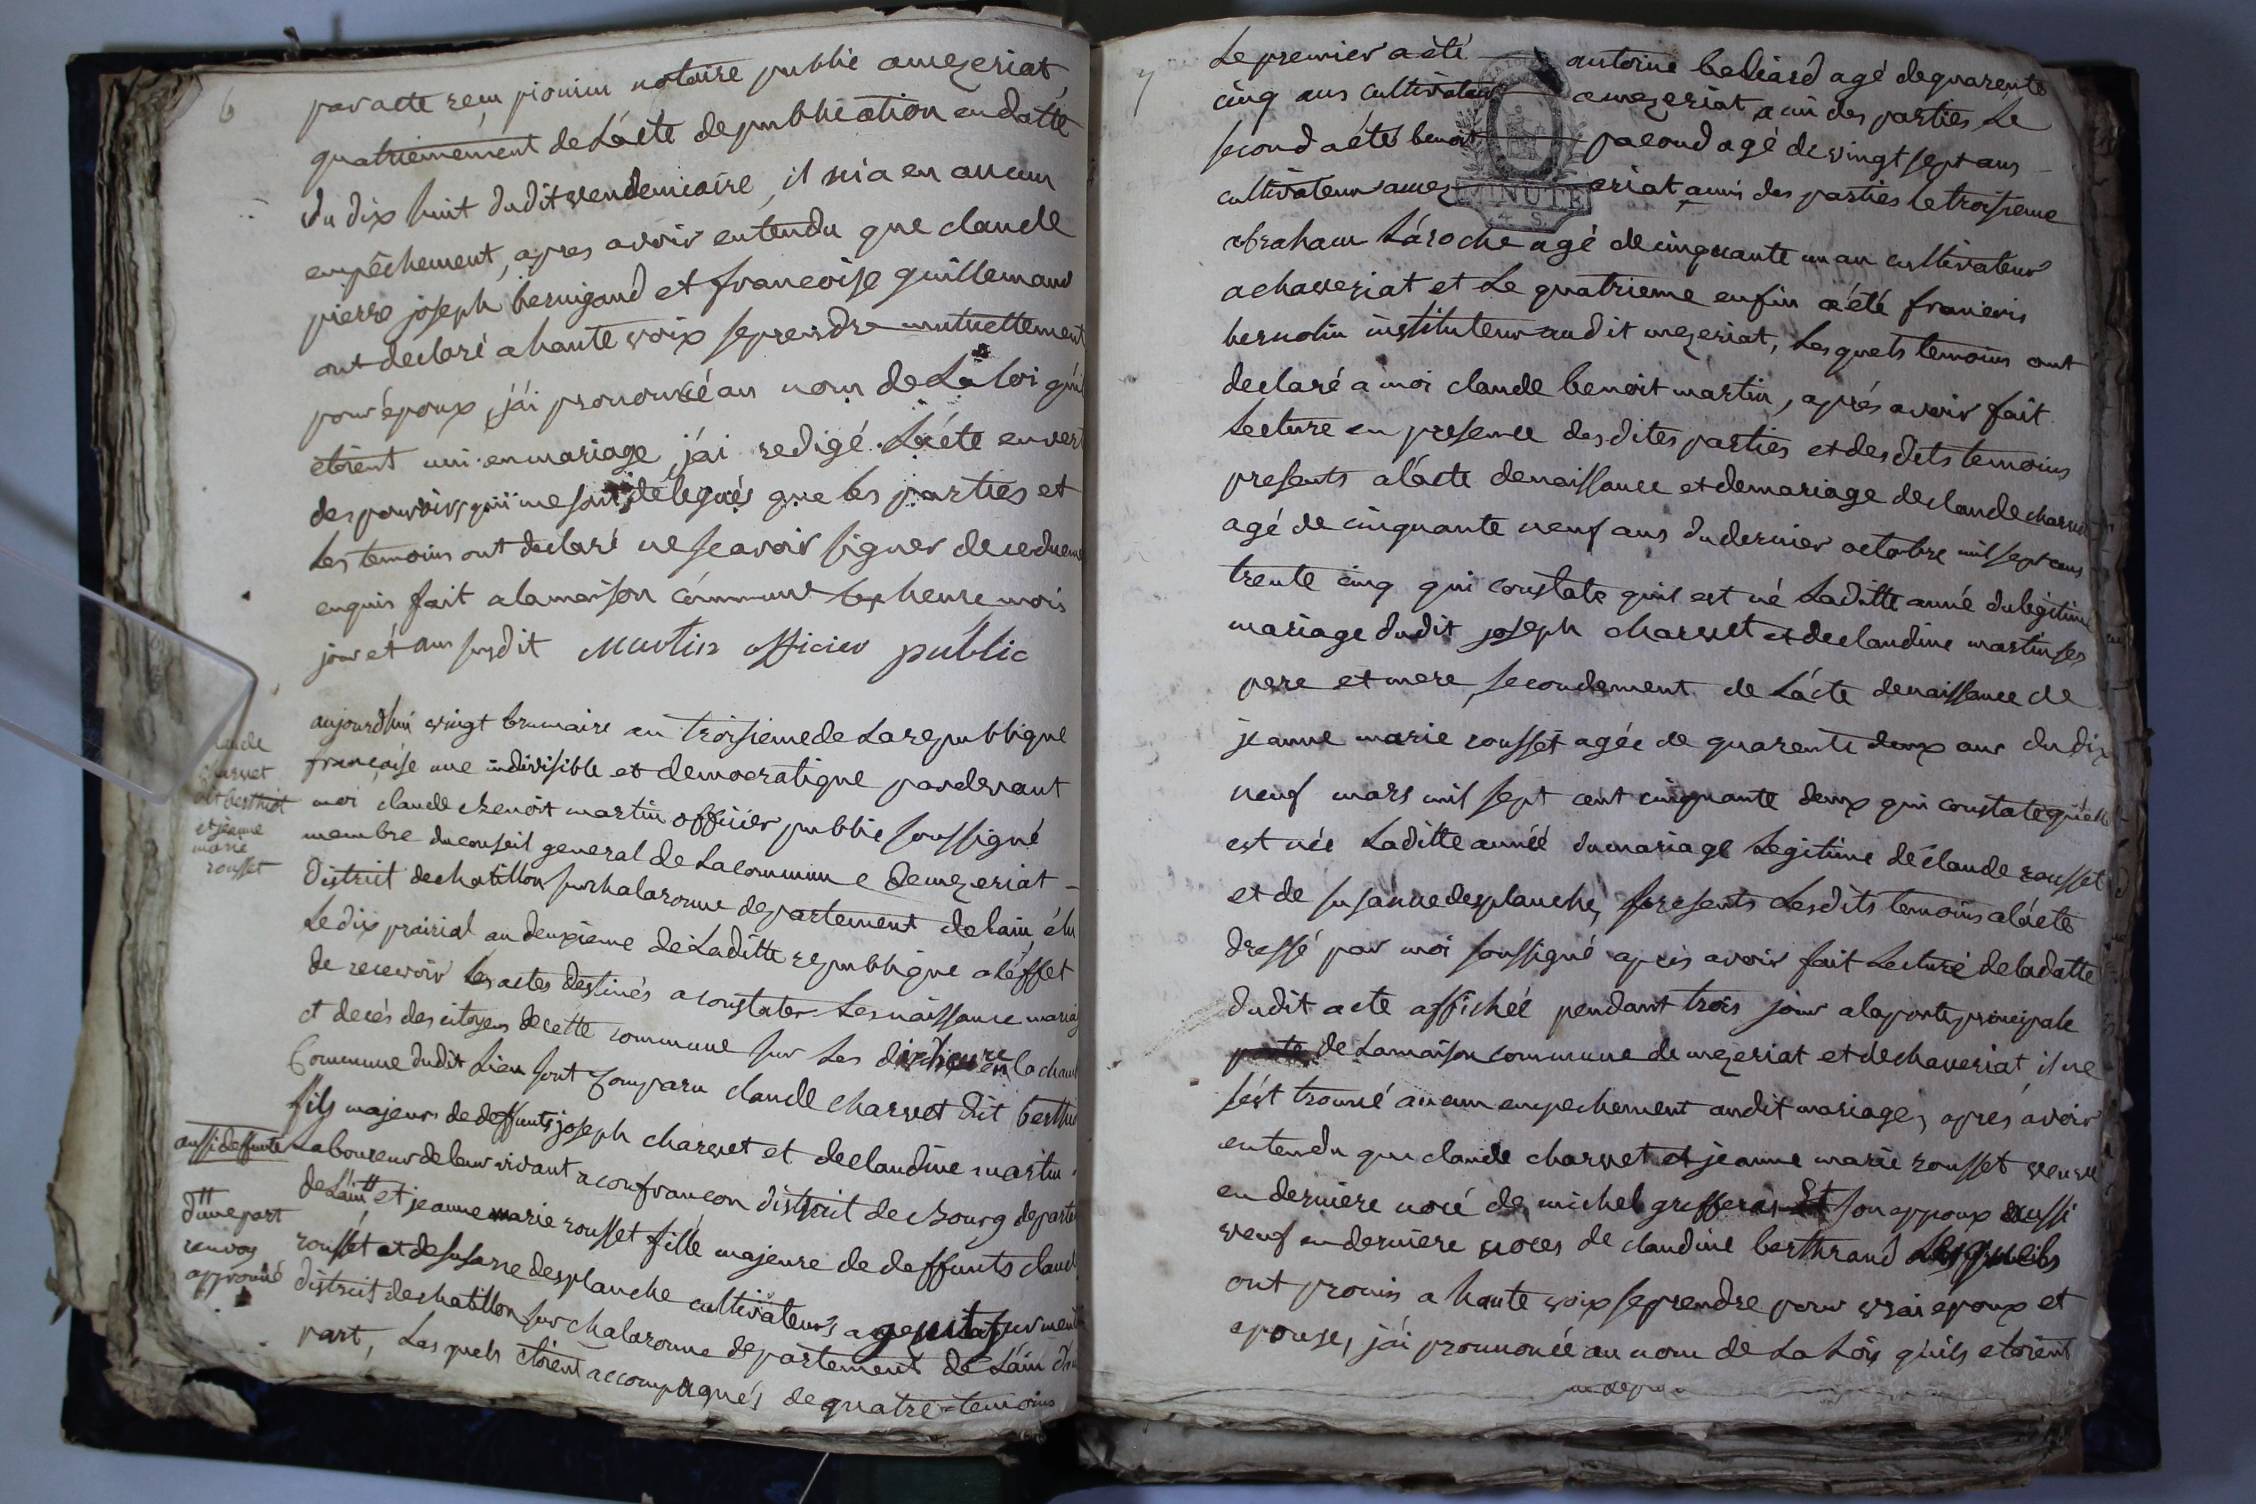 6
par acte reçu pionin notaire public amezeriat
quatriemement de L'acte de publication en datte
du dix huit dudit vendemiaire, il ni a eu aucun
empêchement, apres avoir entendu que claude
pierre joseph bernigaud et francoise guillemaud
ont declaré a haute voix se prendre mutuellement
pour époux, j'ai prononcé au nom de La loi qu'il
étoient uni en mariage j'ai redigé L'acte en vert
des pouvoirs qui me sont delegués que les parties et
Les temoins ont declaré ne scavoir signer de ce dueme
enquis fait a la maison commune les heure mois
jour et an susdit Martin officier public
aujourd'hui vingt brumaire an troisieme de La republique
française une indivisible et democratique pardevant
moi claude Benoit martin officier public soussigné
membre du conseil general de La commune de mezeriat
District de chatillon sur chalaronne departement de lain élu
Le dix prairial an deuxieme de Laditte republique a l'éffet
de recevoir les actes destinés a constater Les naissance mariag
et decés des citoyens de cette commune sur Les dix heure en la chamb
Commune dudit Lieu sont Comparu claude charvet dit berthi
fils majeur de deffunts joseph charvet et de claudine martin
Laboureur de leur vivant a confrancon district de Bourg departe
de L'ain et jeanne marie rousset fille majeure de deffunts claud
rousset et de susanne desplanche cultivateurs a
District de chatillon sur chalaronne departement de L'ain d'au
part, Lesquels étoient accompagnés de quatre temoins
claude
charvet
dit berthiot
et jeanne
marie
rousset
aussi deffunte
d'une part
renvoy
approuvé
7
Le premier a été antoine beliard agé de quarente
cinq ans cultivateur amezeriat ami des parties Le
second a étés benoit pacoud agé de vingt sept ans
cultivateur amezeriat ami des parties le troisieme
abraham Laroche agé de cinquante un an cultivateur
a chaveriat et Le quatrieme enfin a été francois
bernolin instituteur audit mezeriat, Lesquels temoins ont
declaré a moi claude benoit martin, aprés avoir fait
Lecture en presence des dites parties et des dits temoins
presents a l'acte de naissance et de mariage de claude charvet
agé de cinquante neuf ans du dernier octobre mil sept cens
trente cinq qui constate quil est né Laditte anné du legitime
mariage dudit joseph charvet et de claudine martin ses
pere et mere, secondement de L'acte de naissance de
jeanne marie rousset agée de quarente deux ans du dix
neuf mars mil sept cent cinquante deux qui constate qu'elle
est née Laditte année du mariage Legitime de claude rousset
et de susanne desplanche, presents Lesdits temoins a l'acte
dressé par moi soussigné apres avoir fait Lecture de la datte
dudit acte affichée pendant trois jour a la porte principale
porte de La maison commune de mezeriat et de chaveriat, il ne
s'est trouvé aucun empechement audit mariage, apres avoir
entendu que claude charvet et jeanne marie rousset veuve
en derniere nocé de michel grefferas et son eppoux aussi
veuf en derniere noces de claudine berthrand Lesquels
ont promis a haute voix se prendre pour vrai epoux et
epouse, j'ai prononcé au nom de La Loy quils etoient
MINUTE
4 S.